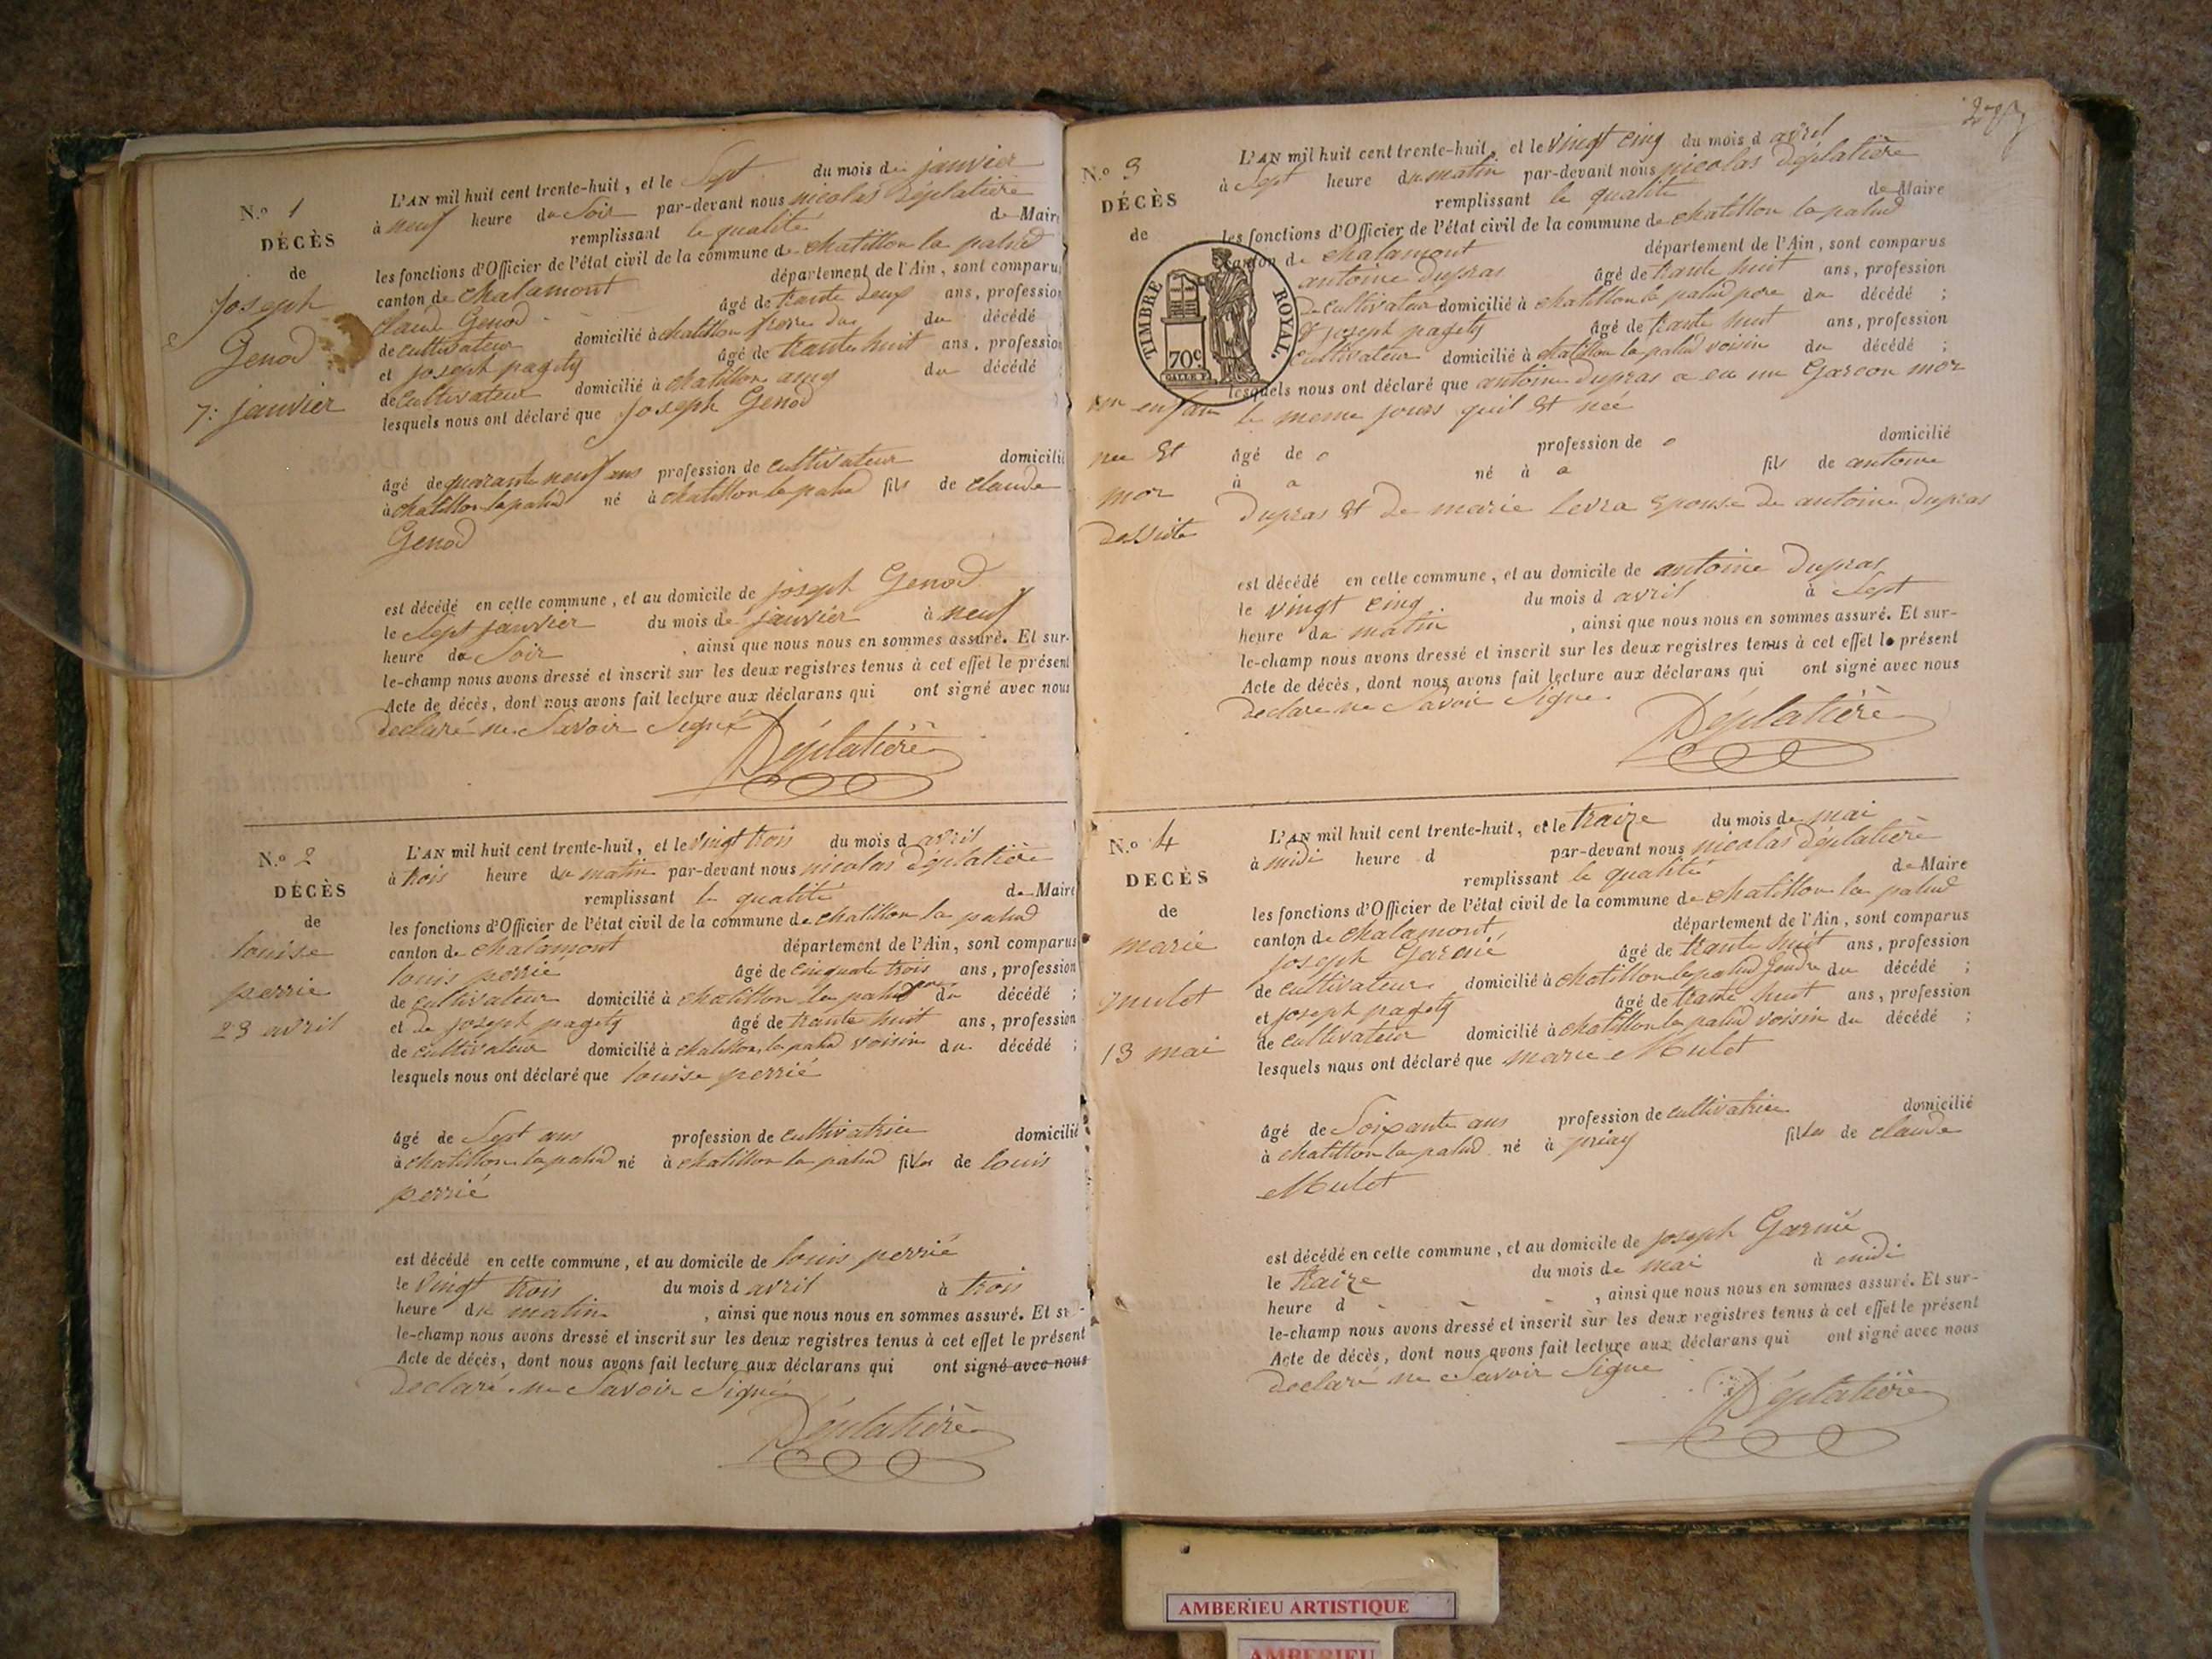 N.o 1
DÉCÈS
de
Joseph
Genod
7: janvier
L'AN mil huit cent trente-huit, et le Sept du mois de janvier
à neuf heure du Soir par-devant nous nicolas Déplatière
remplissant le qualité de Maire
les fonctions d'Officier de l'état civil de la commune de chatillon la palud
canton de chalamont département de l'Ain, sont comparus
claude Genod âgé de trante deux ans, profession
de cultivateur domicilié à chatillon frere du décédé
et joseph pagety âgé de trante huit ans, profession
de cultivateur domicilié à chatillon amy du décédé
lesquels nous ont déclaré que joseph Genod
âgé de quarante neuf ans profession de cultivateur domicilié
à chatillon la palud né à chatillon la palud fils de claude
Genod
est décédé en cette commune, et au domicile de joseph Genod
le Sept janvier du mois de janvier à neuf
heure du Soir , ainsi que nous nous en sommes assuré. Et sur-
le-champ nous avons dressé et inscrit sur les deux registres tenus à cet effet le présent
Acte de décès, dont nous avons fait lecture aux déclarans qui ont signé avec nous
declaré ne Savoir Signé
Déplatière
N.o 2
DÉCÈS
de
louise
perrie
23 avril
L'AN mil huit cent trente-huit, et le vingt trois du mois d avril
à trois heure du matin par-devant nous nicolas Déplatière
remplissant le qualité de Maire
les fonctions d'Officier de l'état civil de la commune de chatillon la palud
canton de chalamont département de l'Ain, sont comparus
louis perrie âgé de cinquate trois ans, profession
de cultivateur domicilié à chatillon la palud du décédé ;
et de joseph pagety âgé de trante huit ans, profession
de cultivateur domicilié à chatillon la palud voisin du décédé ;
lesquels nous ont déclaré que louise perrié
âgé de Sept ans profession de cultivatrice domicilié
à chatillon la palud né à chatillon la palud filles de louis
perrié
est décédé en cette commune, et au domicile de louis perrié
le vingt trois du mois d avril à trois
heure du matin , ainsi que nous nous en sommes assuré. Et sur-
le-champ nous avons dressé et inscrit sur les deux registres tenus à cet effet le présent
Acte de décès, dont nous avons fait lecture aux déclarans qui ont signé avec nous
declaré ne Savoir Signé
Déplatière
N.o 3
DÉCÈS
de
un enfan
nee Et
mor
dessuite
L'AN mil huit cent trente-huit, et le vingt cinq du mois d avril
à Sept heure du matin par-devant nous nicolas Déplatière
remplissant le qualité de Maire
les fonctions d'Officier de l'état civil de la commune de chatillon la palud
canton de chalamont département de l'Ain, sont comparus
antoine dupras âgé de trante huit ans, profession
de cultivateur domicilié à chatillon la palud pere du décédé ;
& joseph pagety âgé de trante huit ans, profession
cultivateur domicilié à chatillon la palud voisin du décédé ;
lesquels nous ont déclaré que antoine dupras a eu un Garcon mor
le meme jours quil Et neé
âgé de o profession de o domicilié
à a né à a fils de antoine
dupras Et de marie levra Epouse de antoine dupras
est décédé en cette commune, et au domicile de antoine dupras
le vingt cinq du mois d avril à Sept
heure du matin , ainsi que nous nous en sommes assuré. Et sur-
le-champ nous avons dressé et inscrit sur les deux registres tenus à cet effet le présent
Acte de décès, dont nous avons fait lecture aux déclarans qui ont signé avec nous
declare ne Savoir Signe
Déplatière
TIMBRE ROYAL.
70c
N.o 4
DECÈS
de
marie
mulet
13 mai
L'AN mil huit cent trente-huit, et le traize du mois de mai
à midi heure d par-devant nous nicolas déplatière
remplissant le qualité de Maire
les fonctions d'Officier de l'état civil de la commune de chatillon la palud
canton de chalamont département de l'Ain, sont comparus
joseph Garnié âgé de trante huit ans, profession
de cultivateur domicilié à chatillon la palud jendre du décédé ;
et joseph pagety âgé de trante huit ans, profession
de cultivateur domicilié à chatillon la palud voisin du décédé ;
lesquels nous ont déclaré que marie Mulet
âgé de Soixante ans profession de cultivatrice domicilié
à chatillon la palud né à priay filles de claude
Mulet
est décédé en cette commune, et au domicile de joseph Garnié
le traize du mois de mai à midi
heure d , ainsi que nous nous en sommes assuré. Et sur-
le-champ nous avons dressé et inscrit sur les deux registres tenus à cet effet le présent
Acte de décès, dont nous avons fait lecture aux déclarans qui ont signé avec nous
declaré ne Savoir Signe
Déplatière
AMBERIEU ARTISTIQUE
AMBERIEU